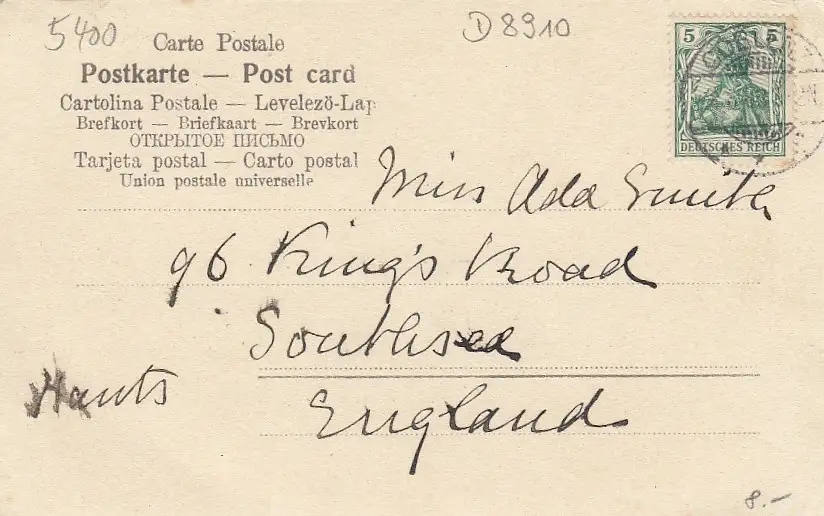 5400
D 8910
Carte Postale
Postkarte — Post card
Cartolina Postale — Levelezö-Lap
Brefkort — Briefkaart — Brevkort
ОТКРЫТОЕ ПИСЬМО
Tarjeta postal — Carto postal
Union postale universelle
5 5
DEUTSCHES REICH
Miss Ada Smith
96 King's Road
Southsea
Hants
England
8.-